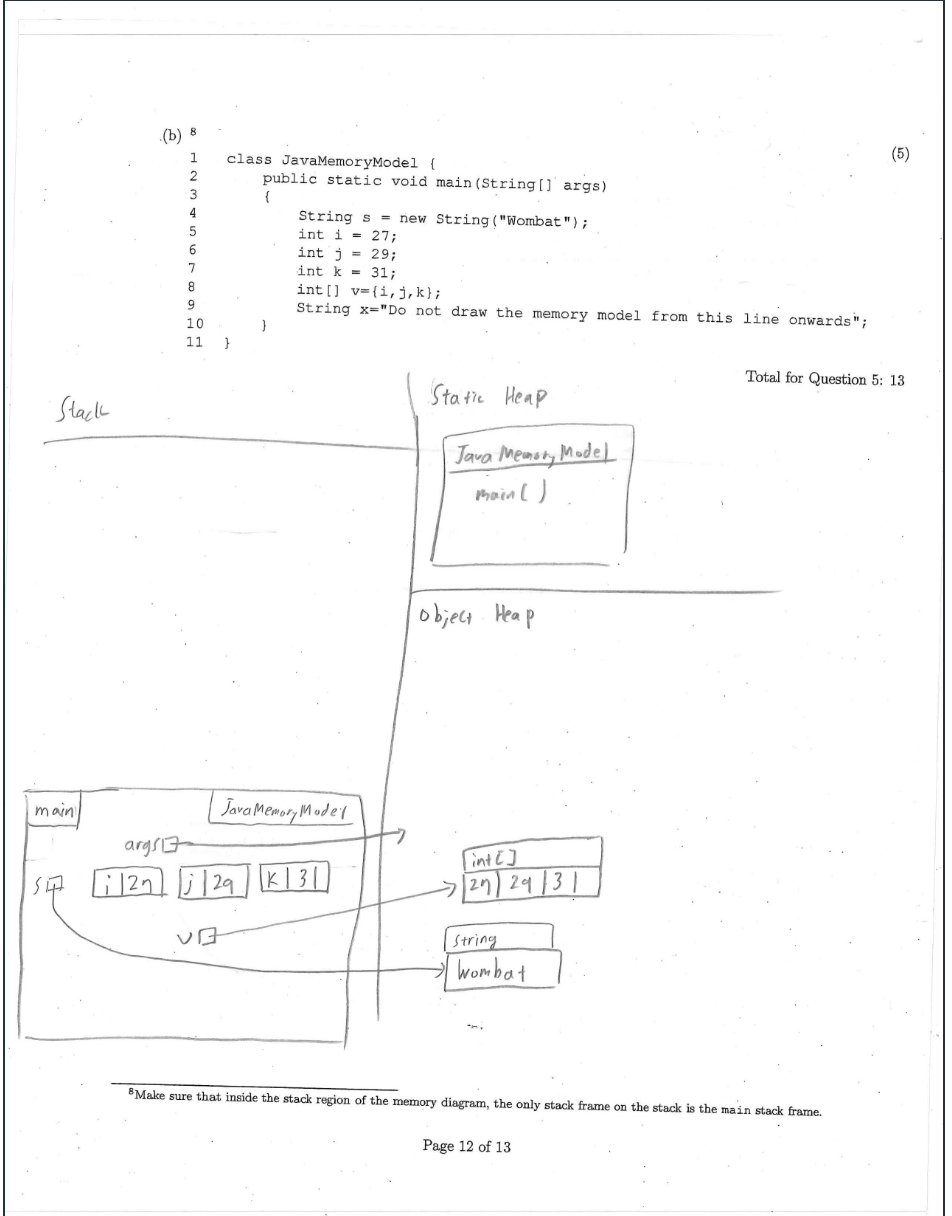 (b) 8
(5)
1 class JavaMemoryModel {
2 public static void main(String[] args)
3 {
4 String s = new String("Wombat");
5 int i = 27;
6 int j = 29;
7 int k = 31;
8 int[] v={i,j,k};
9 String x="Do not draw the memory model from this line onwards";
10 }
11 }
Total for Question 5: 13
Stack
Static Heap
JavaMemoryModel
main()
Object Heap
main
JavaMemoryModel
args
s
i 27
j 29
k 31
v
int[]
27 29 31
String
Wombat
8Make sure that inside the stack region of the memory diagram, the only stack frame on the stack is the main stack frame.
Page 12 of 13